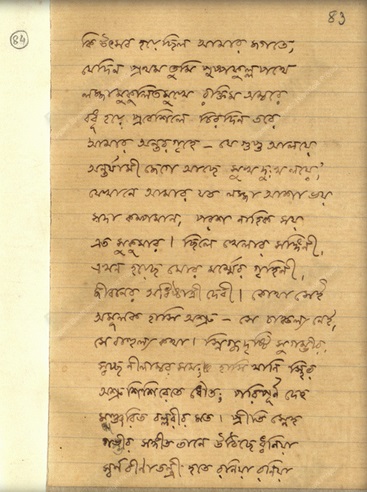 84
83
কি উৎসব হয়েছিল আমার জগতে,
যেদিন প্রথম তুমি পুষ্পফুল্লপথে
লজ্জামুকুলিতমুখে রক্তিম অম্বরে
বধূ হয়ে প্রবেশিলে চিরদিন তরে
আমার অন্তর গৃহে – যে গুপ্ত আলয়ে
অন্তর্যামী জেগে আছে সুখ দুঃখ লয়ে,
যেখানে আমার যত লজ্জা আশা ভয়
সদা কম্পমান, পরশ নাহিক সয়
এত সুকুমার। ছিলে খেলার সঙ্গিনী,
এখন হয়েছ মোর মর্ম্মের গৃহিনী,
জীবনের অধিষ্ঠাত্রী দেবী। কোথা সেই
অমূলক হাসি অশ্রু – সে চাঞ্চল্য নেই,
সে বাহুল্য কথা। স্নিগ্ধদৃষ্টি সুগম্ভীর
স্বচ্ছ নীলাম্বর সম; হাসি খানি স্থির
অশ্রু শিশিরেতে ধৌত; পরিপূর্ণ দেহ
মুঞ্জরিত বল্লরীর মত। প্রীতি স্নেহ
গভীর সঙ্গীত তানে উঠিছে ধ্বনিয়া
স্বর্ণ বীণাতন্ত্রী হতে রনিয়া রনিয়া